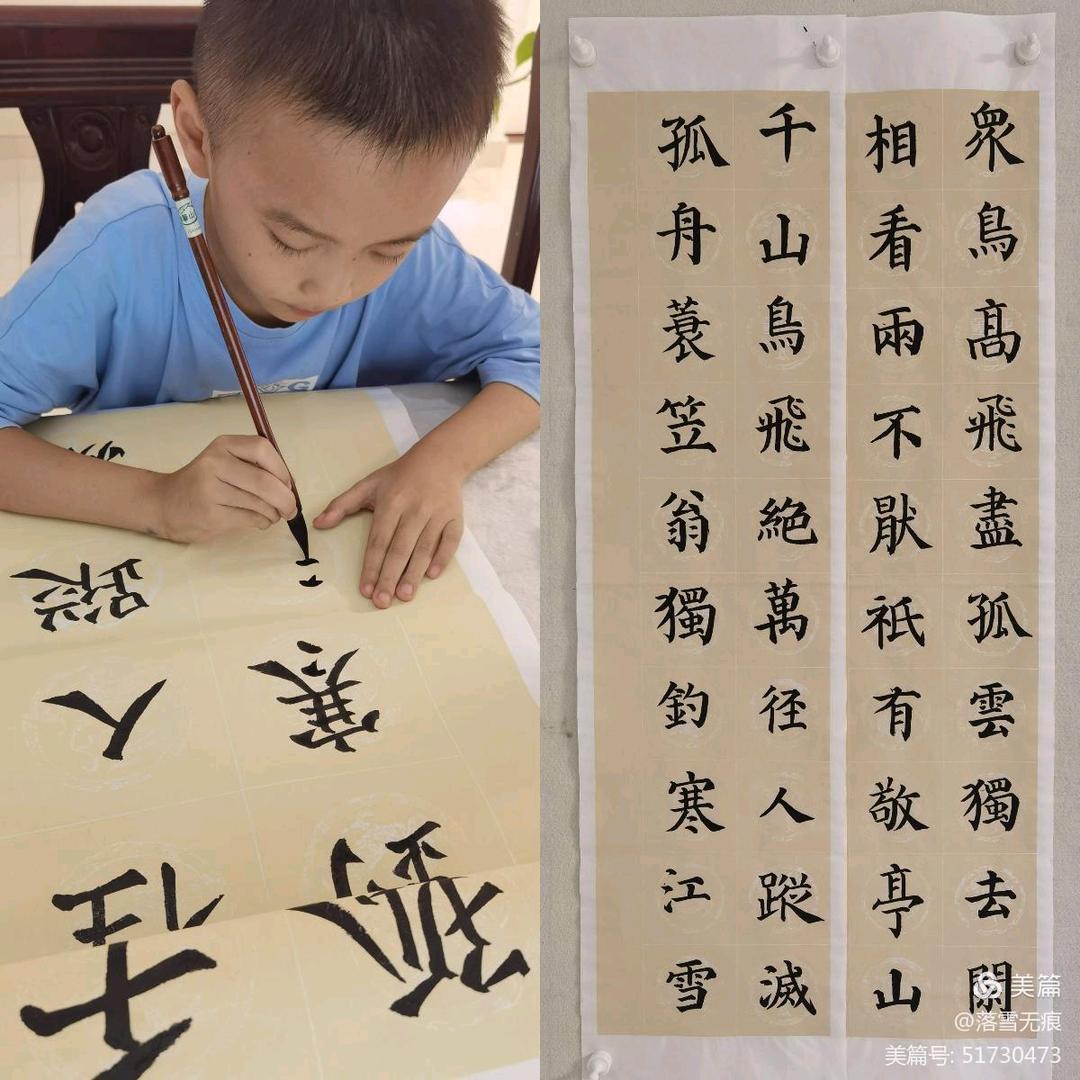 千径人蹤
孤釣寒
眾鳥髙飛盡孤雲獨去
相看兩不猒祇有敬亭山
千山鳥飛絕萬径人蹤滅
孤舟蓑笠翁獨釣寒江雪
美篇
@落雪无痕
美篇号: 51730473